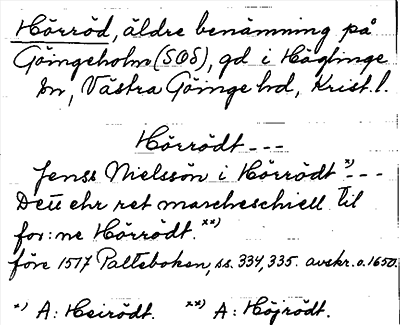 Hörröd, äldre benämning på
Göingeholm (SOS), gd i Häglinge
sn, Västra Göinge hd, Krist. l.
Hörrödt ---
Jenss Nielssön i Hörrödt x) ---
Dett ehr ret marcheschiell til
for:ne Hörrödt. xx)
före 1517 Palteboken, ss. 334, 335. avskr. o. 1650.
x) A: Heirödt. xx) A: Höjrödt.